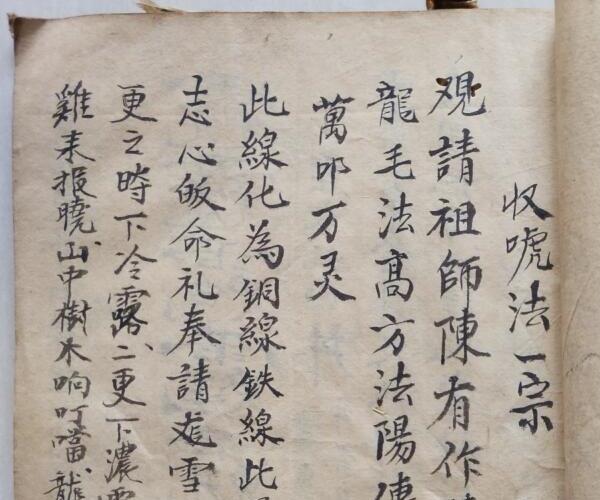 收唬法一宗
观請祖師陳有作
龍毛法高方法陽傳
萬叩万灵
此線化為銅線鉄線此
志心皈命礼奉請 雪
更之時下冷露二更下濃
雞未报曉山中樹木响叮噹龍